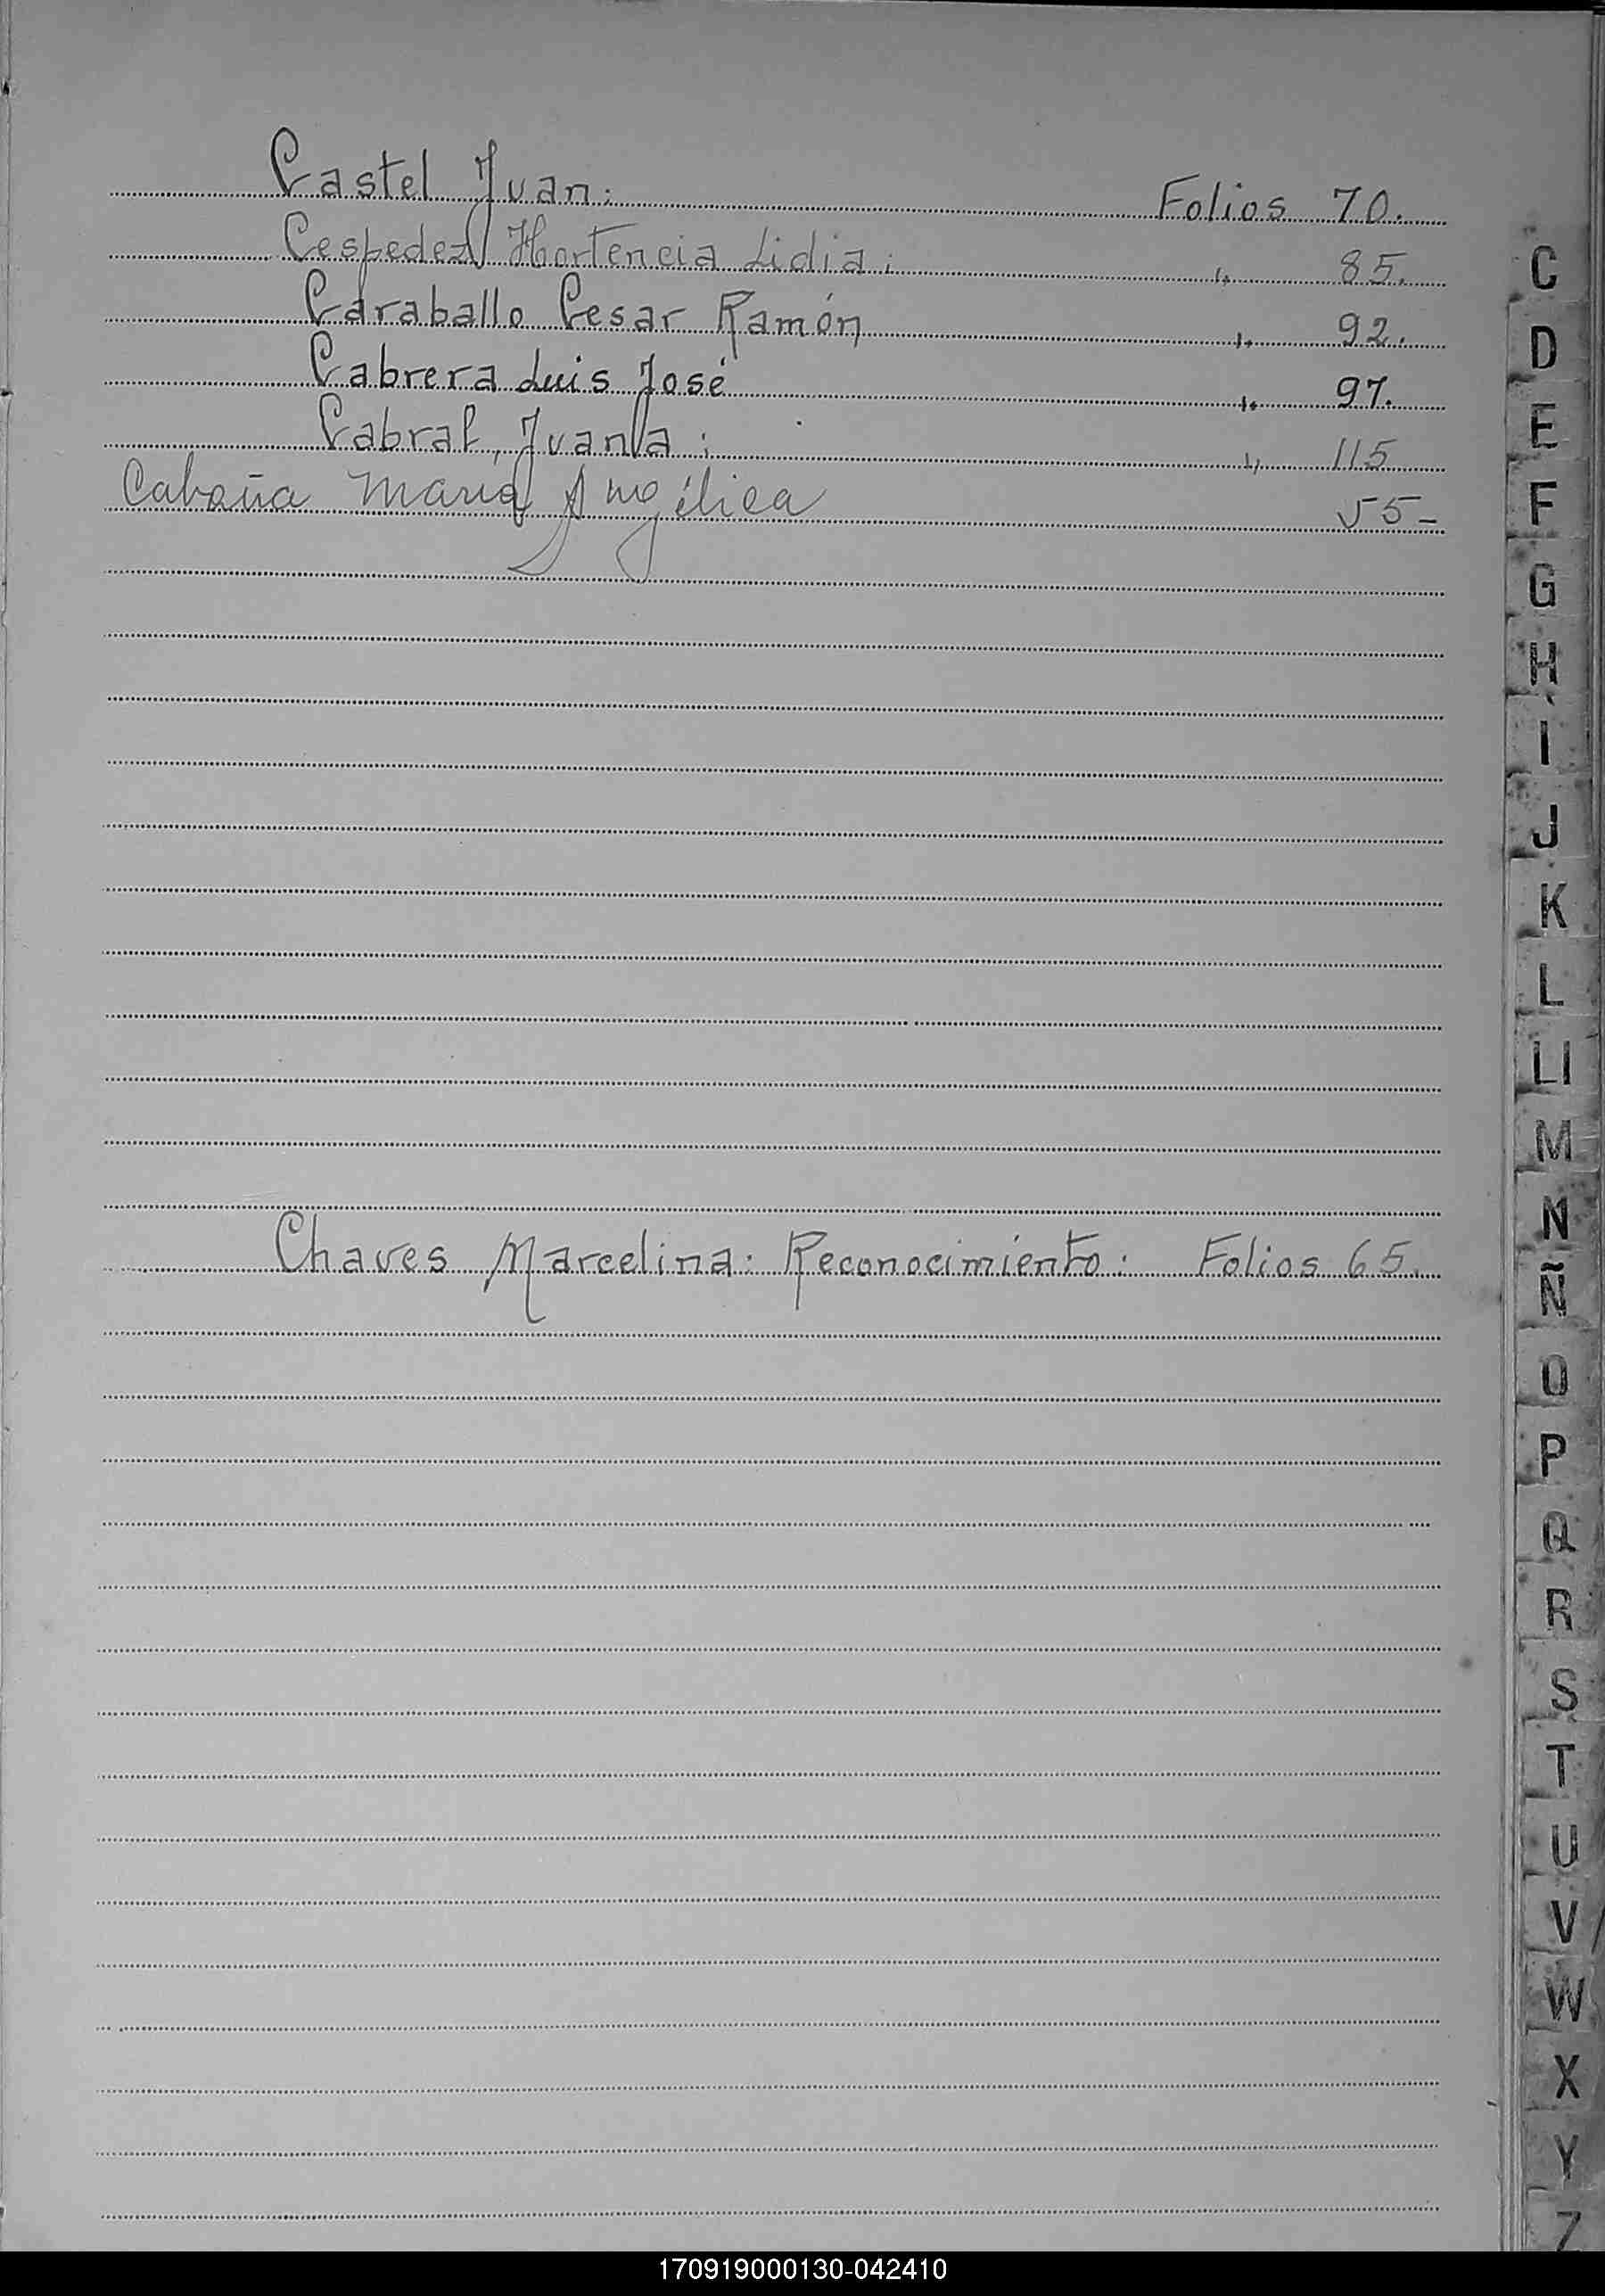 Castel Juan: Folios 70.
Cespedez Hortencia Lidia: " 85.
Caraballo Cesar Ramón " 92.
Cabrera Luis José " 97.
Cabral, Juana: " 115
Cabaña Maria Angélica 55-
Chaves Marcelina: Reconocimiento: Folios 65.
C
D
E
F
G
H
I
J
K
L
Ll
M
N
Ñ
O
P
Q
R
S
T
U
V
W
X
Y
Z
170919000130-042410